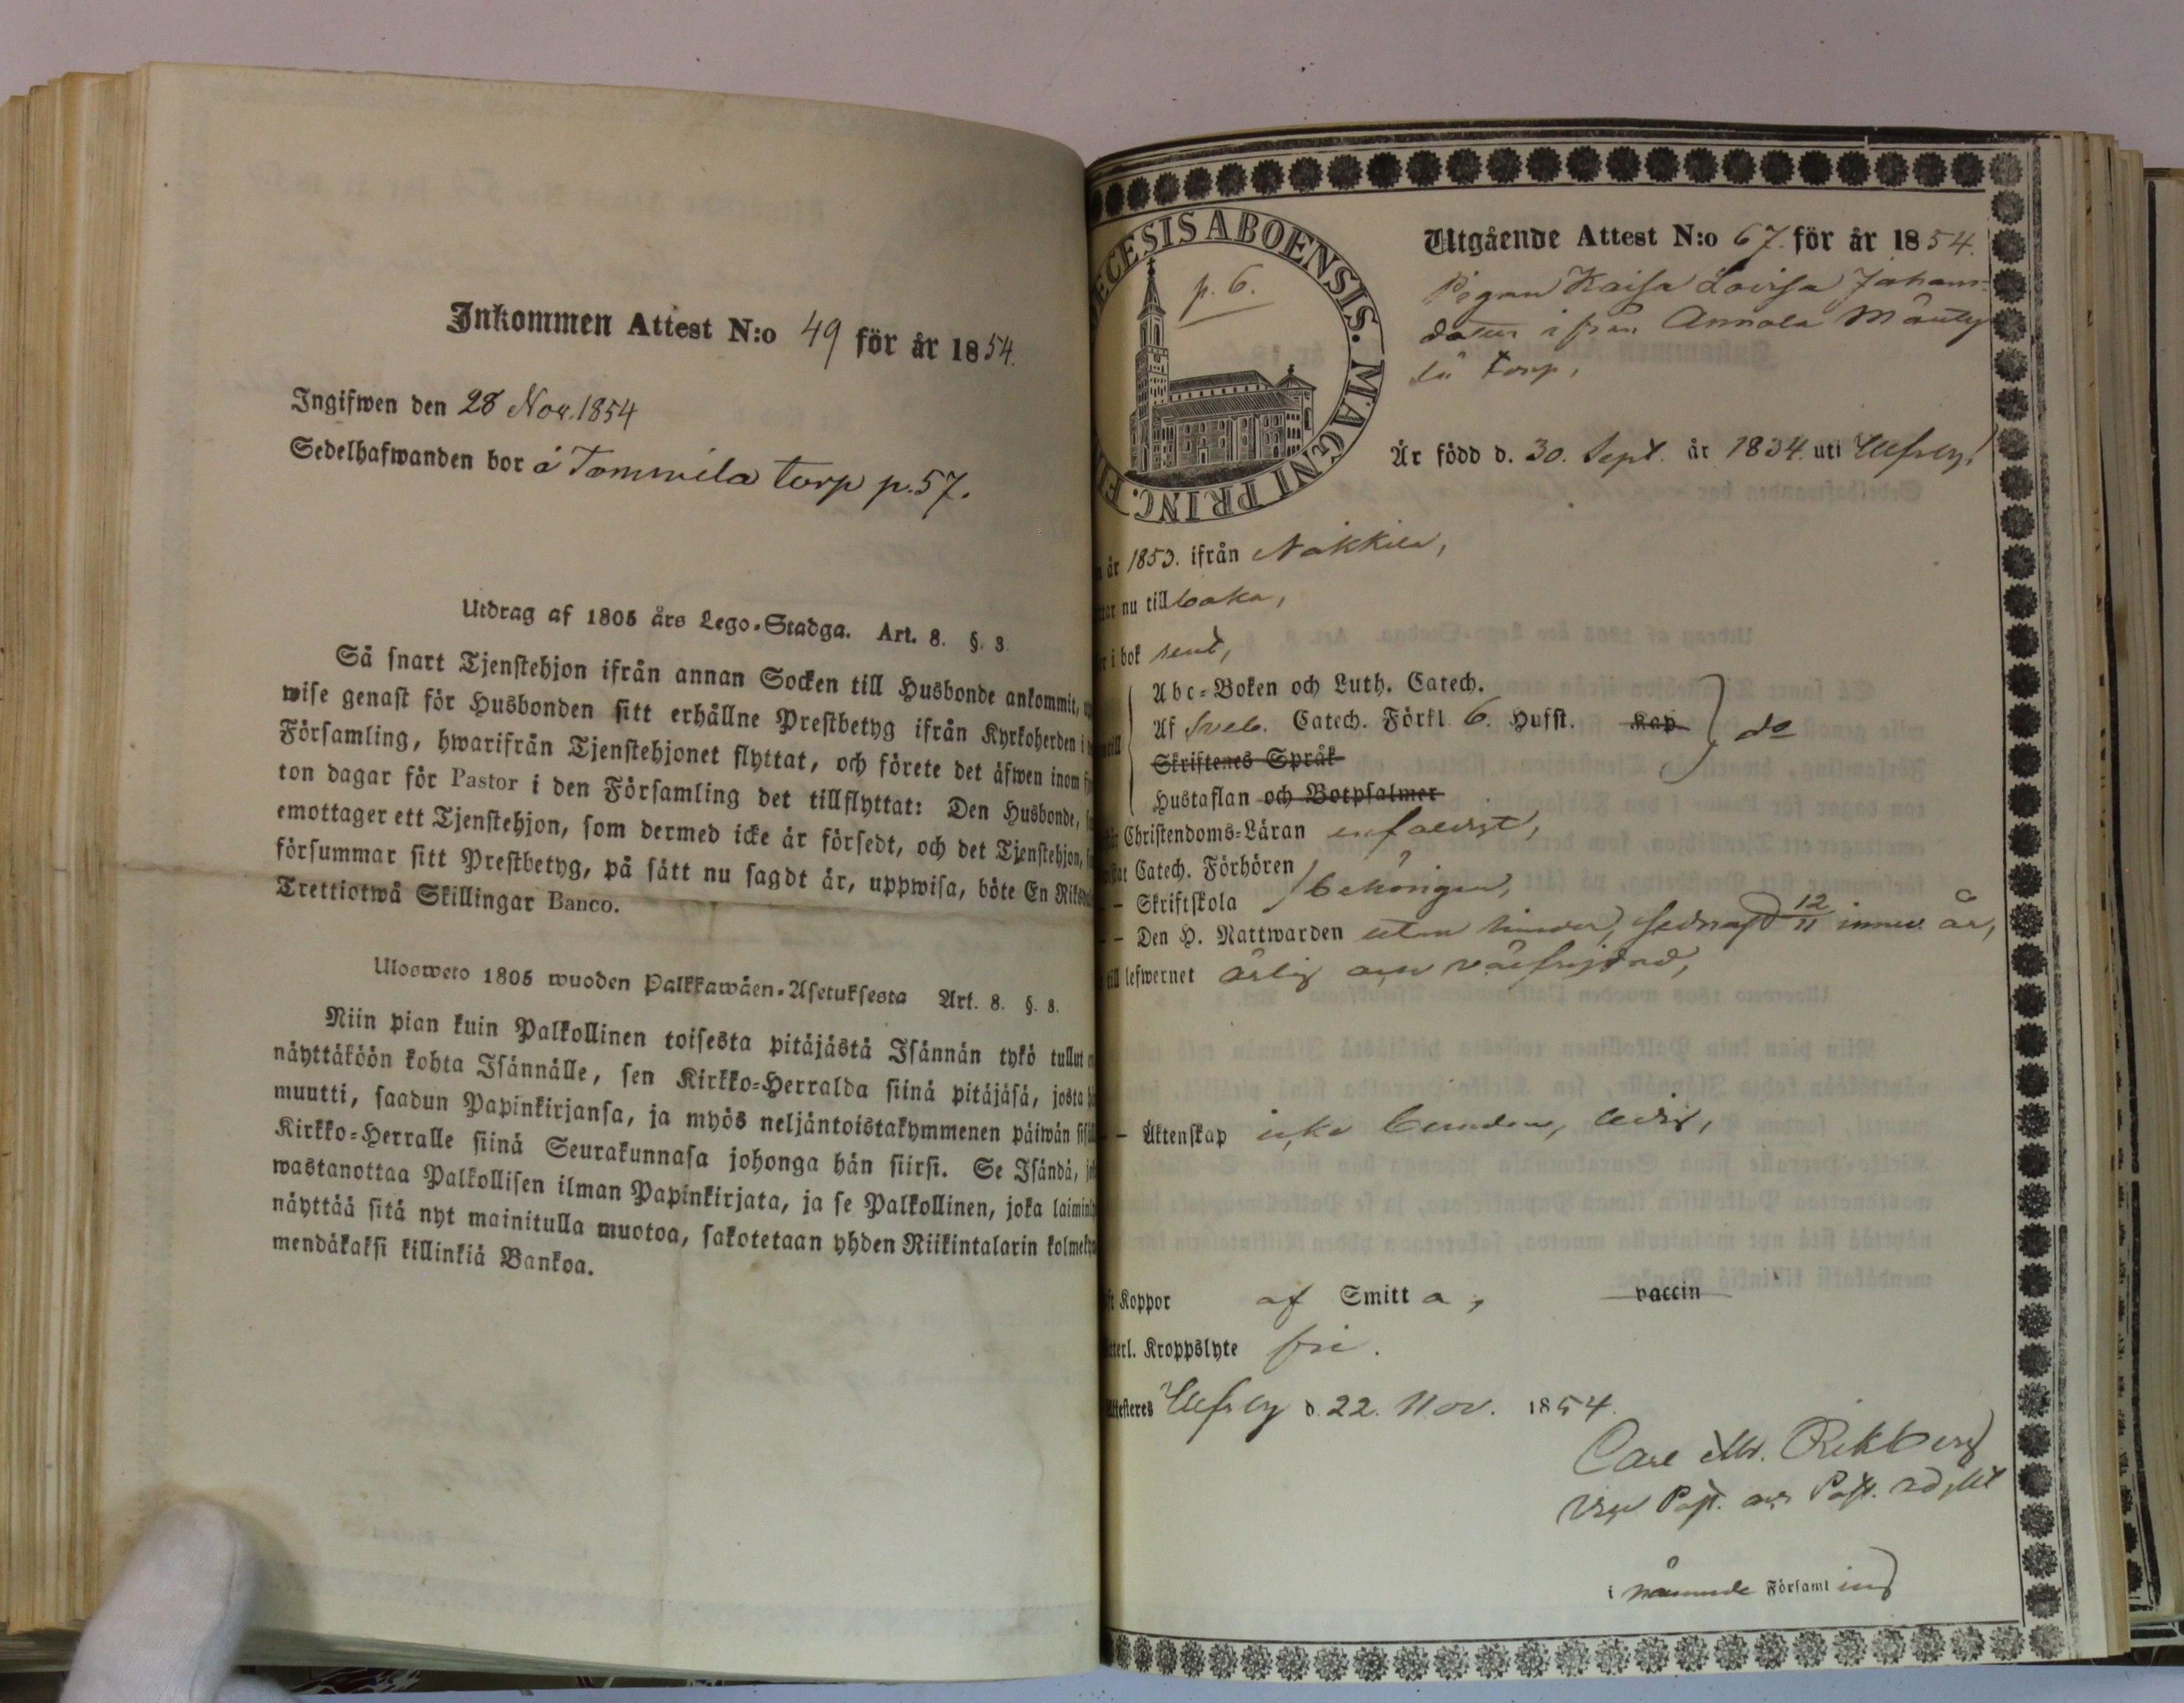 Inkommen Attest N:o 49 för år 1854.
Ingifwen den 28 Nov. 1854
Sedelhafwanden bor å Tommila torp p. 57.
Utdrag af 1805 års Lego-Stadga. Art. 8. §. 3.
Så snart Tjenstehjon ifrån annan Socken till Husbonde ankommit,
wise genast för Husbonden sitt erhållne Prestbetyg ifrån Kyrkoherden i
Församling, hwarifrån Tjenstehjonet flyttat, och förete det äfwen inom
ton dagar för Pastor i den Församling det tillflyttat: Den Husbonde,
emottager ett Tjenstehjon, som dermed icke är försedt, och det Tjenstehjon,
försummar sitt Prestbetyg, på sätt nu sagdt är, uppwisa, böte En
Trettiotwå Skillingar Banco.
Ulosweto 1805 wuoden Palkkawäen-Asetuksesta Art. 8. §. 8.
Niin pian kuin Palkollinen toisesta pitäjästä Isännän tykö tullut
näyttäköön kohta Isännälle, sen Kirkko-Herralda siinä pitäjäsä, josta
muutti, saadun Papinkirjansa, ja myös neljäntoistakymmenen päiwän
Kirkko-Herralle siinä Seurakunnasa johonga hän siirsi. Se Isändä,
wastanottaa Palkollisen ilman Papinkirjata, ja se Palkollinen, joka
näyttää sitä nyt mainitulla muotoa, sakotetaan yhden Riikintalarin
mendäkaksi killinkiä Bankoa.
ECESIS ABOENSIS. MAGNI PRINC. FI
p. 6.
Utgående Attest N:o 67. för år 1854.
Pigan Kaisa Lovisa Johans-
doter ifrån Annala Mänty
lä torp,
Är född d. 30. Sept. år 1834. uti Ulfsby,
år 1853. ifrån Nakkila,
nu tillbaka,
i bok rent,
Abc-Boken och Luth. Catech.
Af Sveb. Catech. Förkl. 6. Hufst. Kap do
Skriftenes Språk
Hustaflan och Botpsalmer
Christendoms-Läran enfaldigt,
Catech. Förhören
– Skriftskola behörigen,
– Den H. Nattwarden utan hinder, sednast 12/11 innev. år,
till lefwernet ärlig och välfrejdad,
– Äktenskap icke bunden, ledig,
Koppor af Smitta, vaccin
Kroppslyte fri.
Ulfsby d. 22. Nov. 1854.
Carl M. Rikberg
Vice Past. och Past. adjkt
i nämnde Församling